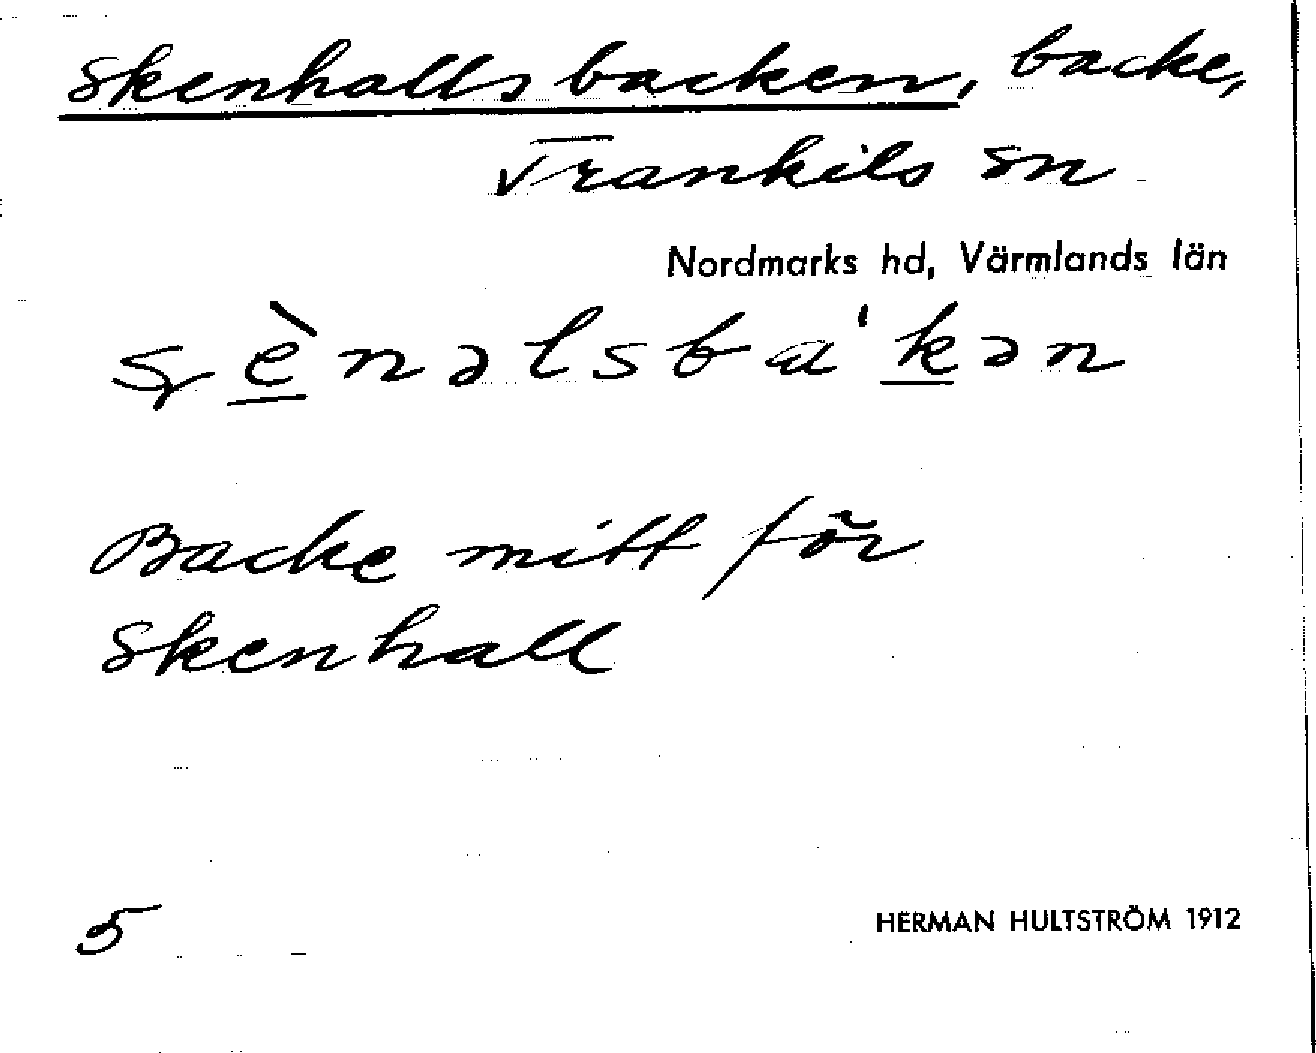 Skenhallsbacken, backe,
Trankils sn
Nordmarks hd, Värmlands län
ʂènəlsba'kən
Backe mitt för
Skenhall
5
HERMAN HULTSTRÖM 1912